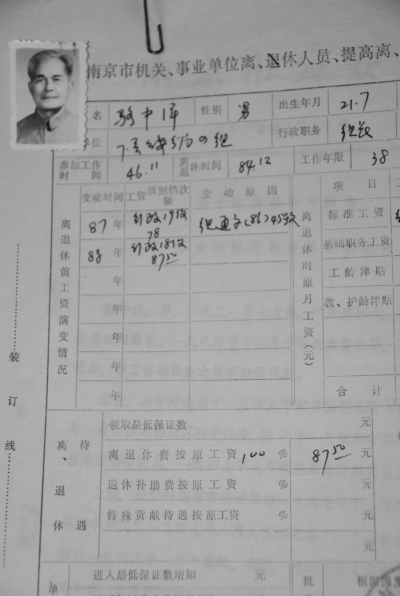 南京市机关、事业单位离、退休人员、提高离、
名 骆中洋 性别 男 出生年月 21.7
位 行政职务
参加工作时间 46.11 离退休时间 84.12 工作年限 38
变动时间 工资级别档次额 变动原因 项目
离退休前工资演变情况
87年 行政19级 78 标准工资
88年 行政18级 87.50 基础职务工资
年 工龄津贴
年 教、护龄津贴
年
年 合计
离退休时原月工资(元)
装订线
离、退休待遇
领取最低保证数 元
离退休费按原工资 100 % 87.50 元
退休补助费按原工资 % 元
特殊贡献待遇按原工资 % 元
单 进入最低保证数增加 元 批 根据国